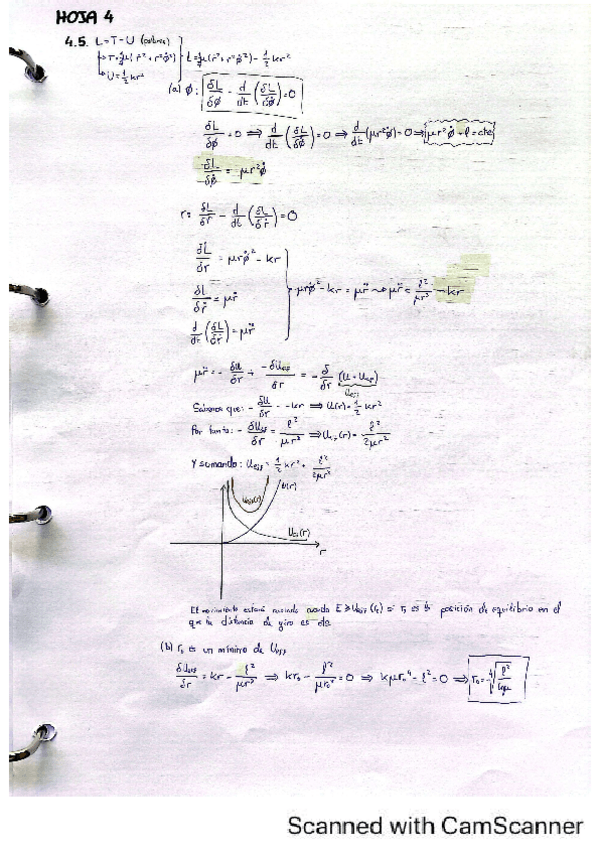 HOJA 4
4.5. L = T - U (polares)
→ T = ½μ(ṙ² + r²φ̇²) L = ½μ(ṙ² + r²φ̇²) - ½ kr²
→ U = ½ kr²
(a) φ: δL/δφ - d/dt (δL/δφ̇) = 0
δL/δφ = 0 ⟹ d/dt (δL/δφ̇) = 0 ⟹ d/dt (μr²φ̇) = 0 ⟹ μr²φ̇ = l = cte
δL/δφ̇ = μr²φ̇
r: δL/δr - d/dt (δL/δṙ) = 0
δL/δr = μrφ̇² - kr
δL/δṙ = μṙ
μrφ̇² - kr = μr̈ → μr̈ = l²/μr³ - kr
d/dt (δL/δṙ) = μr̈
μr̈ = - δU/δr + -δUcf/δr = - δ/δr (U + Ucf)
Ueff
Sabemos que: - δU/δr = -kr ⟹ U(r) = ½ kr²
Por tanto: - δUcf/δr = l²/μr³ ⟹ Ucf(r) = l²/2μr²
Y sumando: Ueff = ½ kr² + l²/2μr²
Ueff(r) U(r)
Ucf(r)
r
El movimiento estará cuando E ≥ Ueff(r₀) r₀ es la posición de equilibrio en el
que la distancia de giro es cte
(b) r₀ es un mínimo de Ueff
δUeff/δr = kr - l²/μr³ ⟹ kr₀ - l²/μr₀³ = 0 ⟹ kμr₀⁴ - l² = 0 ⟹ r₀ = ⁴√(l²/kμ)
Scanned with CamScanner